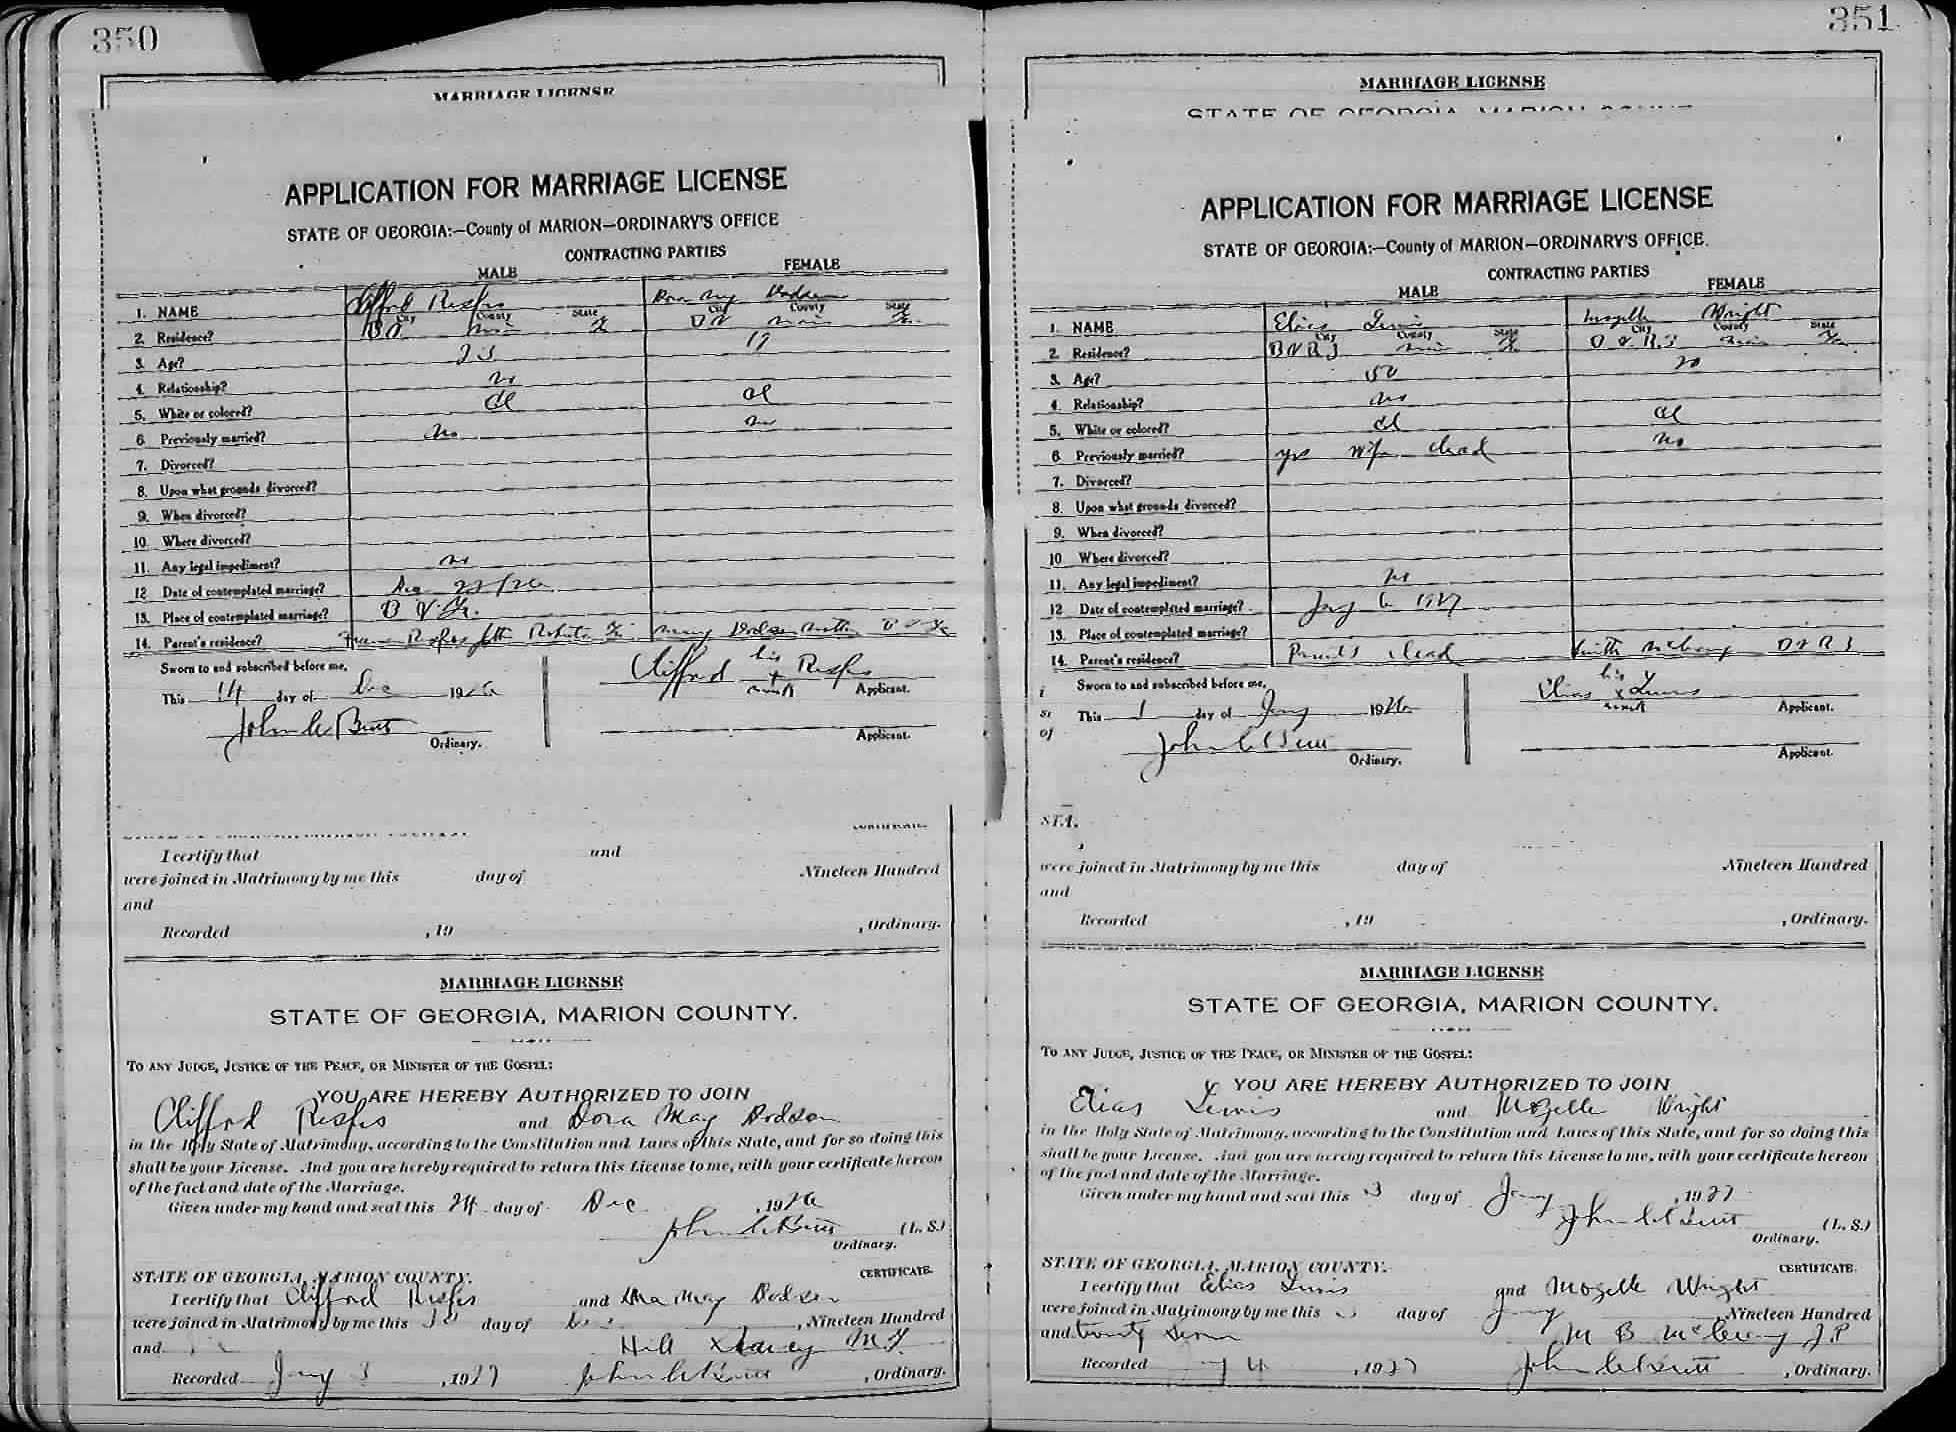 350
MARRIAGE LICENSE
APPLICATION FOR MARRIAGE LICENSE
STATE OF GEORGIA:—County of MARION—ORDINARY'S OFFICE
CONTRACTING PARTIES
MALE FEMALE
1. NAME Clifford Dora May Dodson
City County State City County State
2. Residence?
3. Age? 19
4. Relationship? no
5. White or colored? Cl Cl
6 Previously married? no no
7. Divorced?
8. Upon what grounds divorced?
9. When divorced?
10. Where divorced?
11. Any legal impediment? no
12 Date of contemplated marriage? Dec
13. Place of contemplated marriage? B V Ga.
14. Parent's residence?
Sworn to and subscribed before me,
This 14 day of Dec 1926
John C Butt
Ordinary.
Clifford his x mark
Applicant.
Applicant.
I certify that and
were joined in Matrimony by me this day of Nineteen Hundred
and
Recorded , 19 , Ordinary.
MARRIAGE LICENSE
STATE OF GEORGIA, MARION COUNTY.
TO ANY JUDGE, JUSTICE OF THE PEACE, OR MINISTER OF THE GOSPEL:
YOU ARE HEREBY AUTHORIZED TO JOIN
Clifford and Dora May Dodson
in the Holy State of Matrimony, according to the Constitution and Laws of this State, and for so doing this
shall be your License. And you are hereby required to return this License to me, with your certificate hereon
of the fact and date of the Marriage.
Given under my hand and seal this 24 day of Dec , 1926
John C Butt (L. S.)
Ordinary.
STATE OF GEORGIA, MARION COUNTY. CERTIFICATE.
I certify that Clifford and Dora May Dodson
were joined in Matrimony by me this day of , Nineteen Hundred
and
Recorded Jany 3 , 1927 John C Butt , Ordinary.
351
MARRIAGE LICENSE
STATE OF GEORGIA, MARION COUNT
APPLICATION FOR MARRIAGE LICENSE
STATE OF GEORGIA:—County of MARION—ORDINARY'S OFFICE.
CONTRACTING PARTIES
MALE FEMALE
1. NAME Elias Lewis Mozelle Wright
City County State City County State
2. Residence?
3. Age? 50 20
4. Relationship? no
5. White or colored? Cl Cl
6 Previously married? yes wife dead no
7. Divorced?
8. Upon what grounds divorced?
9. When divorced?
10 Where divorced?
11. Any legal impediment? no
12 Date of contemplated marriage? Jany 6 1927
13. Place of contemplated marriage?
14 Parent's residence? Parents dead
Sworn to and subscribed before me,
This 1 day of Jany 1926
John C Butt
Ordinary.
Elias his x mark Lewis
Applicant.
Applicant.
STA.
were joined in Matrimony by me this day of Nineteen Hundred
and
Recorded , 19 , Ordinary.
MARRIAGE LICENSE
STATE OF GEORGIA, MARION COUNTY.
TO ANY JUDGE, JUSTICE OF THE PEACE, OR MINISTER OF THE GOSPEL:
YOU ARE HEREBY AUTHORIZED TO JOIN
Elias Lewis and Mozelle Wright
in the Holy State of Matrimony, according to the Constitution and Laws of this State, and for so doing this
shall be your License. And you are hereby required to return this License to me, with your certificate hereon
of the fact and date of the Marriage.
Given under my hand and seal this 3 day of Jany , 1927
John C Butt (L. S.)
Ordinary.
STATE OF GEORGIA, MARION COUNTY. CERTIFICATE.
I certify that Elias Lewis and Mozelle Wright
were joined in Matrimony by me this day of Jany Nineteen Hundred
and twenty seven M B McCrary J.P
Recorded 4 , 1927 John C Butt , Ordinary.